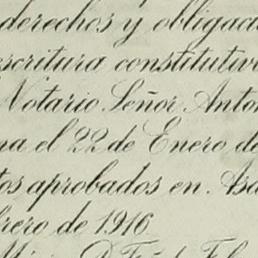 derechos y obligac
scritura constitutiv
Notario Señor Anto
na el 22 de Enero de
tos aprobados en. Asa
brero de 1916